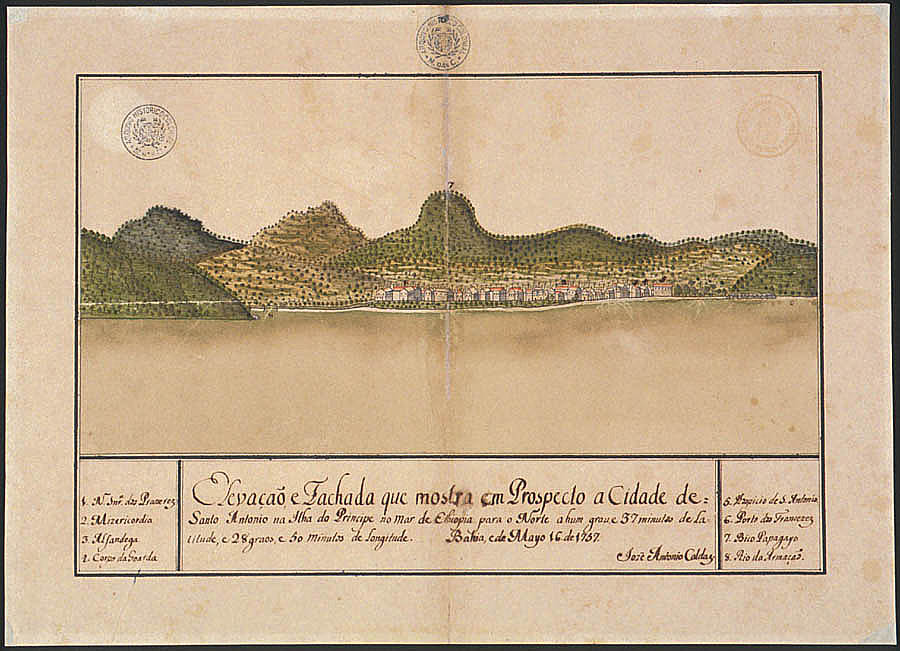 ARQUIVO HISTORICO COLONIAL
7
1. N. Snr.ª dos Prazeres
2. Mizericordia
3. Alfandega
4. Corpo da Goarda
Elevação e Fachada que mostra em Prospecto a Cidade de=
Santo Antonio na Ilha do Principe no mar de Ethiopia para o Norte a hum grau e 37 minutos de La-
titude, e 28 graos, e 50 minutos de Longitude. Bahia, e de Mayo 16 de 1757.
Joze Antonio Caldas
5. Hospicio de S. Antonio
6. Ponta dos Francezes
7. Bico Papagayo
8. Rio da Armação